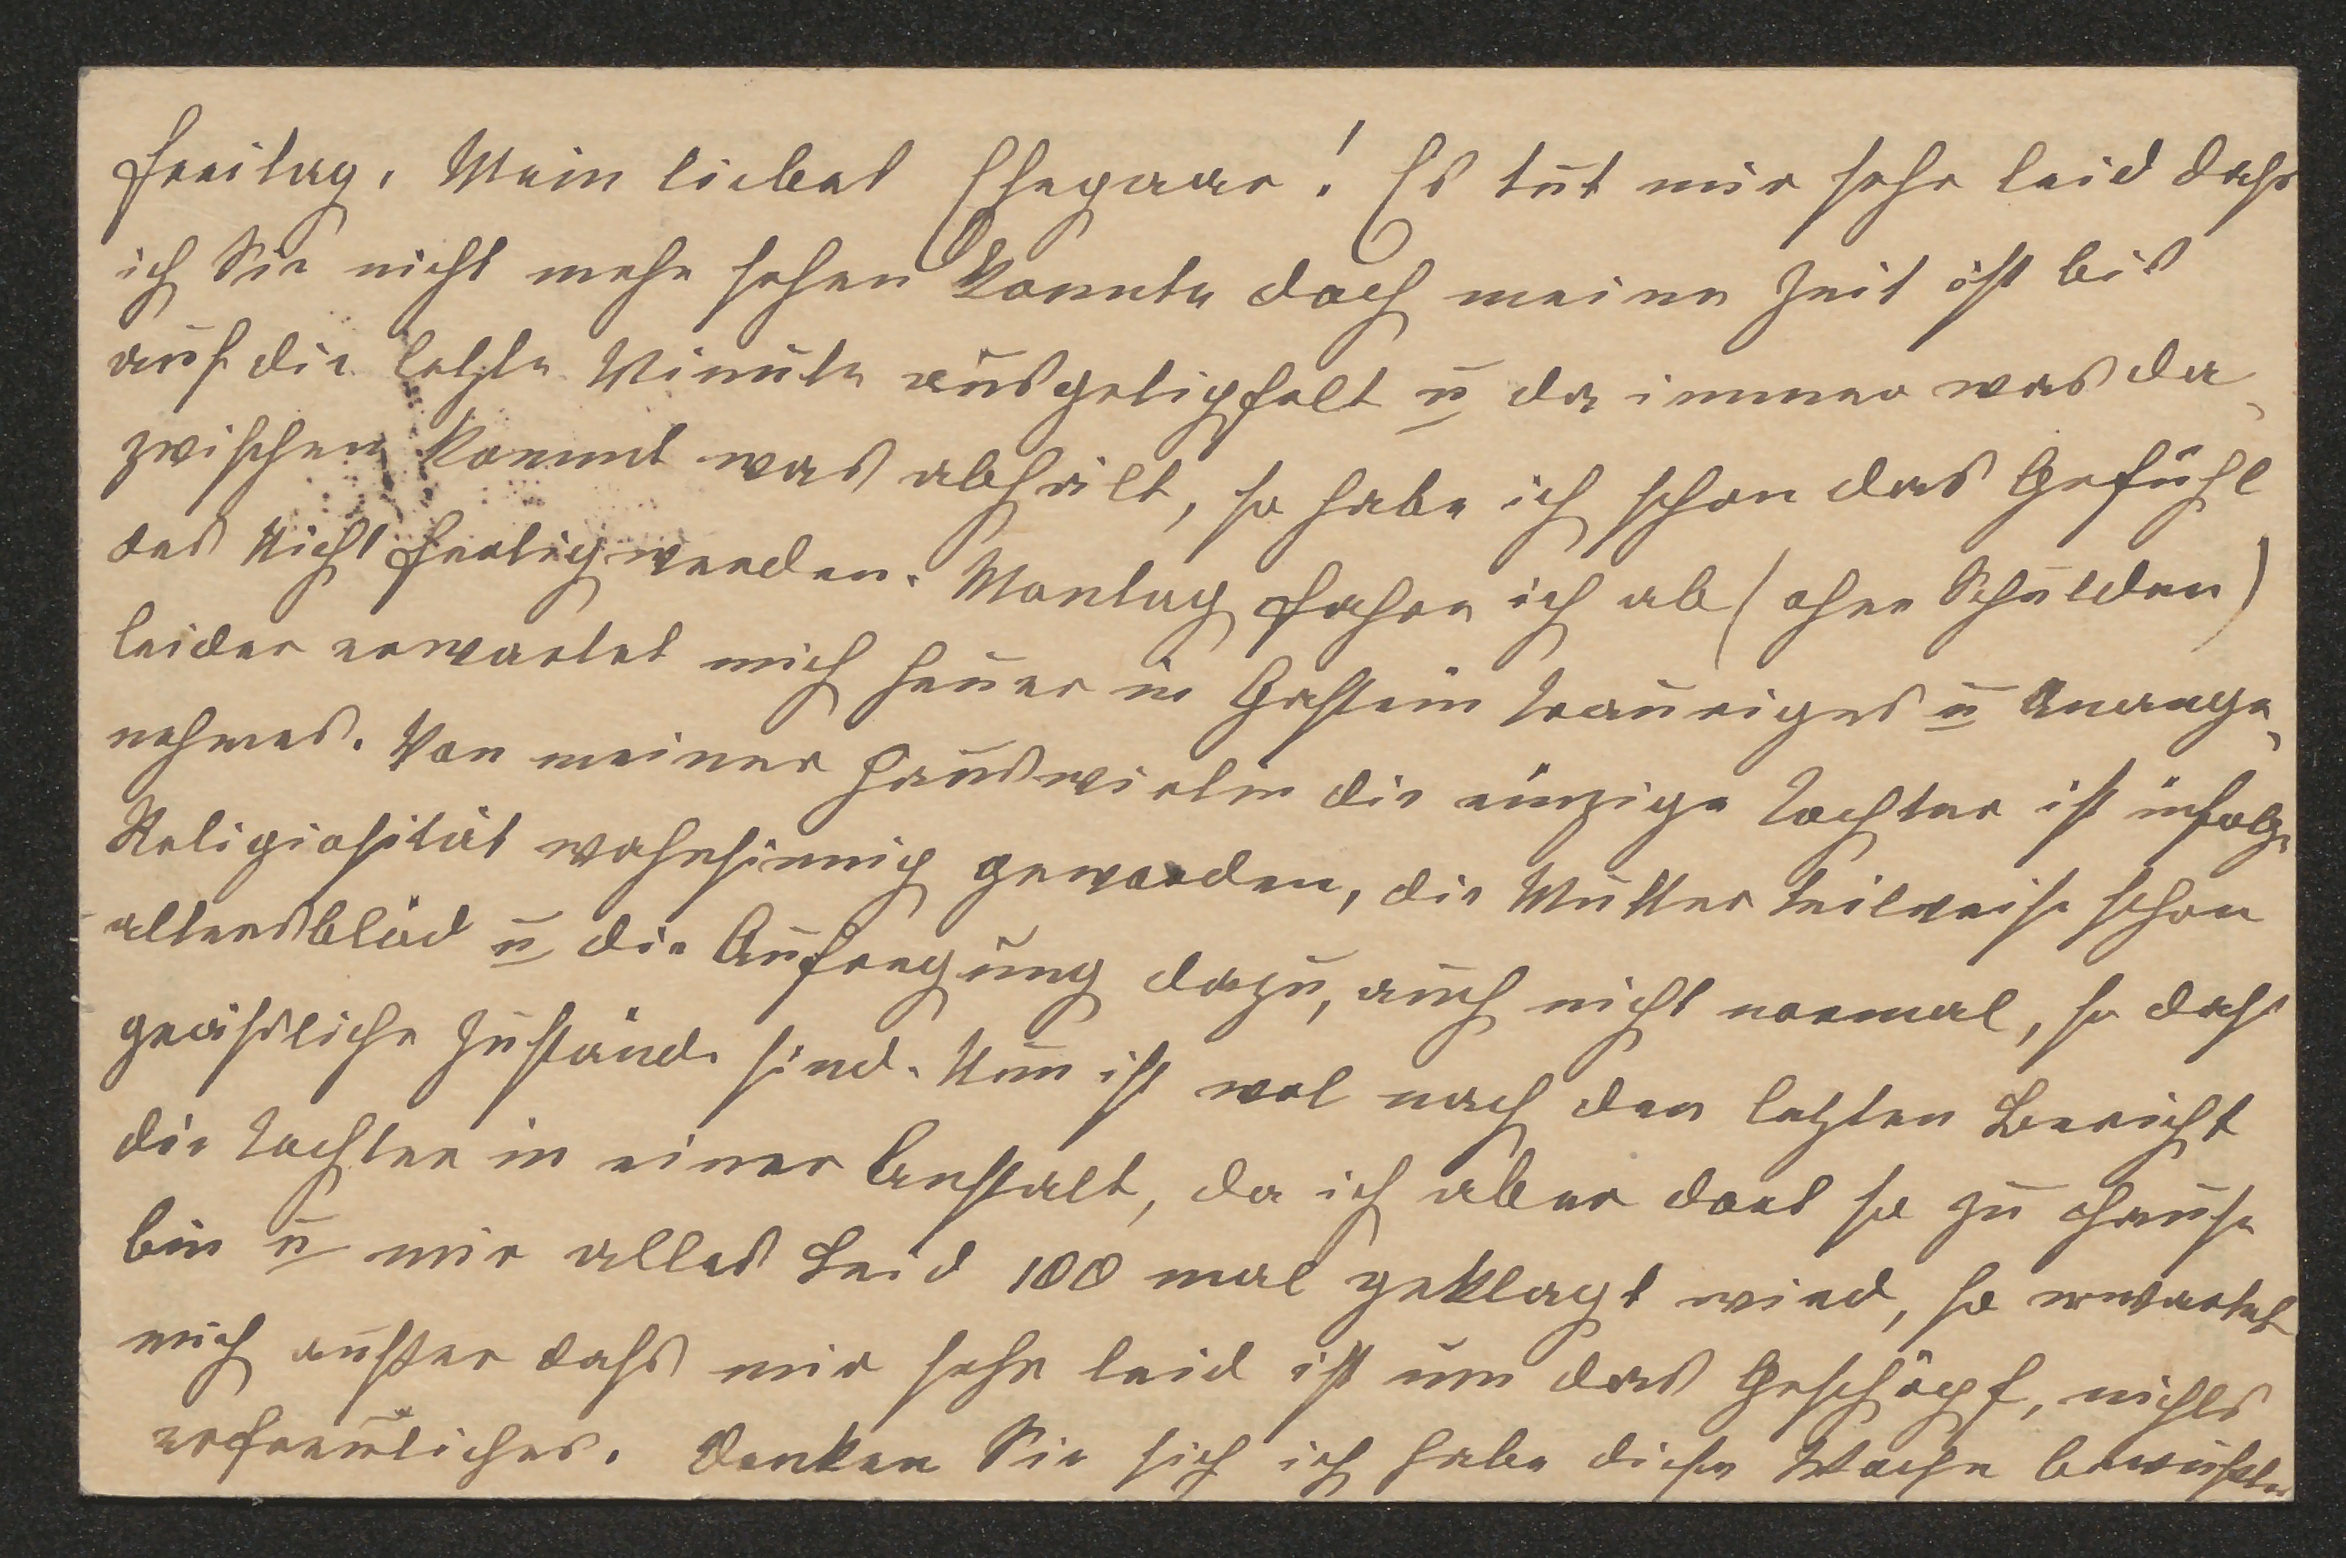 Freitag. Mein liebes Ehepaar! Es tut mir sehr leid dass
ich Sie nicht mehr sehen konnte doch meine Zeit ist bis
auf die letzte Minute ausgetipfelt u da immer was da-
zwischen kommt was abhält, so habe ich schon das Gefühl
des Nicht fertigwerden. Montag fahre ich ab (ohne Schulden)
leider erwartet mich heuer in Gastein trauriges u Unange-
nehmes. Von meiner Hauswirtin die einzige Tochter ist infolge
Religiosität wahnsinnig geworden, die Mutter teilweise schon
altersblöd u die Aufregung dazu, auch nicht normal, so dass
grässliche Zustände sind. Nun ist wol nach den letzten Bericht
die Tochter in einer Anstalt, da ich aber dort so zu Hause
bin u mir alles Leid 100 mal geklagt wird, so erwartet
mich ausser dass mir sehr leid ist um das Geschöpf, nichts
erfreuliches. Denken Sie sich ich habe diese Woche